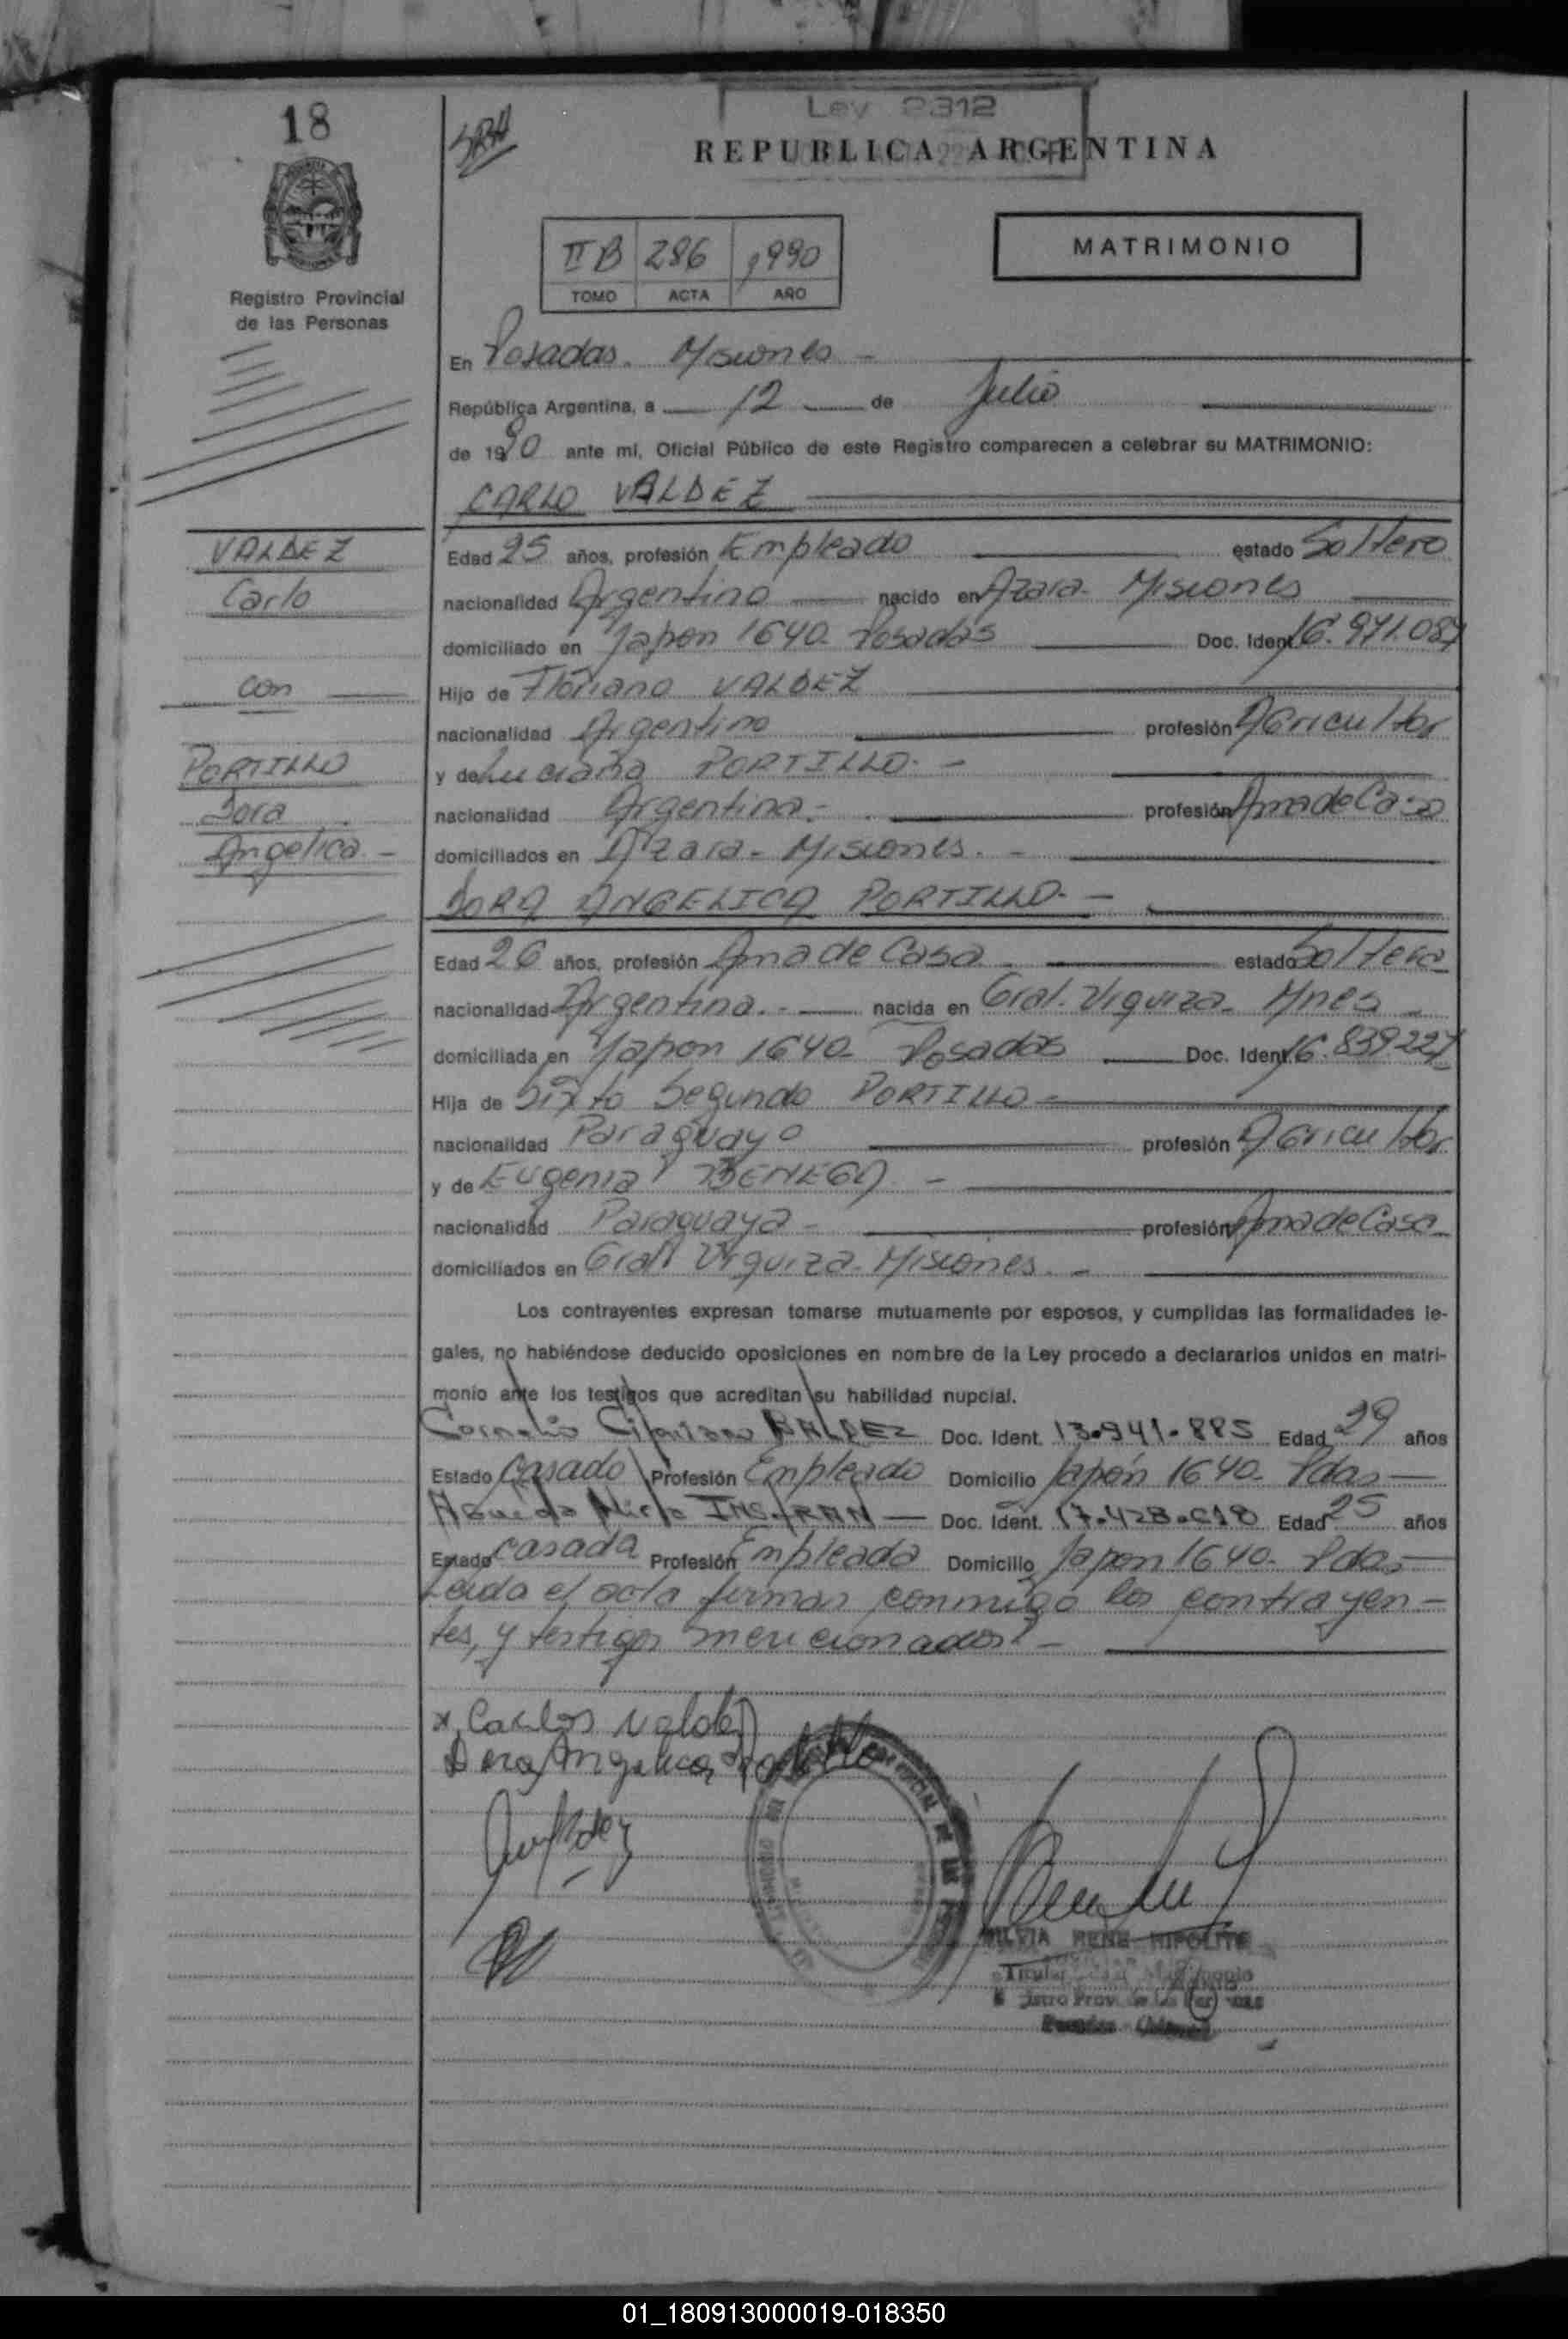 18
Ley 2312
REPUBLICA ARGENTINA
MATRIMONIO
II B 286 1990
TOMO ACTA AÑO
Registro Provincial
de las Personas
En Posadas. Misiones -
República Argentina, a 12 de Julio
de 1990 ante mí, Oficial Público de este Registro comparecen a celebrar su MATRIMONIO:
CARLO VALDEZ
VALDEZ
Carlo
con
PORTILLO
Dora
Angelica -
Edad 25 años, profesión Empleado estado Soltero
nacionalidad Argentino nacido en Azara - Misiones
domiciliado en Japon 1640 - Posadas Doc. Ident. 16.971.087
Hijo de Floriano VALDEZ
nacionalidad Argentino profesión Agricultor
y de Luciana PORTILLO. -
nacionalidad Argentina - profesión Ama de Casa
domiciliados en Azara - Misiones. -
DORA ANGELICA PORTILLO - -
Edad 26 años, profesión Ama de Casa estado Soltera
nacionalidad Argentina. - nacida en Gral. Urquiza - Mnes -
domiciliada en Japon 1640 - Posadas Doc. Ident. 16.839.227
Hija de Sixto Segundo PORTILLO -
nacionalidad Paraguayo profesión Agricultor
y de Eugenia BENEGA -
nacionalidad Paraguaya - profesión Ama de Casa
domiciliados en Gral Urquiza - Misiones. -
Los contrayentes expresan tomarse mutuamente por esposos, y cumplidas las formalidades le-
gales, no habiéndose deducido oposiciones en nombre de la Ley procedo a declararlos unidos en matri-
monio ante los testigos que acreditan su habilidad nupcial.
Cornelio BALDEZ Doc. Ident. 13.941.885 Edad 29 años
Estado Casado Profesión Empleado Domicilio Japón 1640 - Pdas
Mirta INSAURRAN Doc. Ident. 17.428.018 Edad 25 años
Estado Casada Profesión Empleada Domicilio Japon 1640 - Pdas
Leida el acta firman conmigo los contrayen-
tes, y testigos mencionados. -
x Carlos Valdez
Dora Angelica Portillo
SILVIA RENE HIPOLITE
01_180913000019-018350